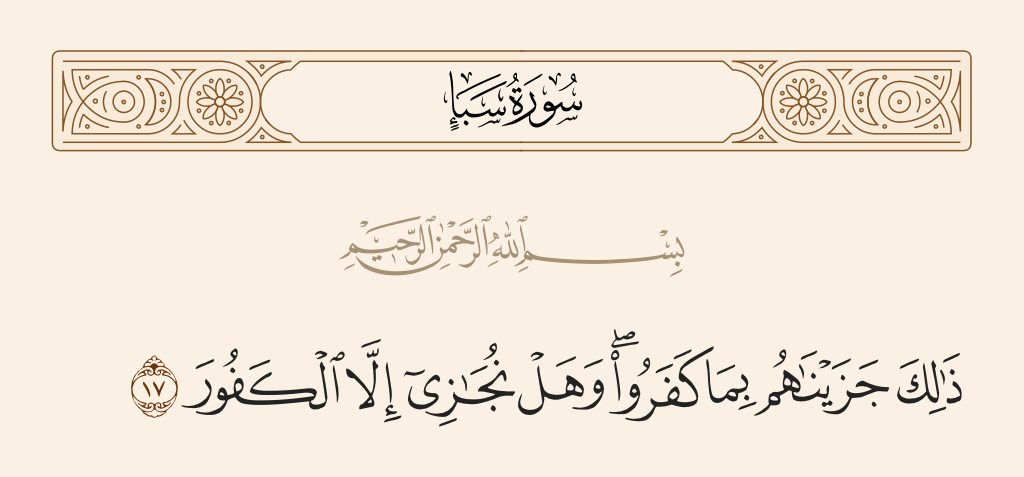 سُورَةُ سَبَإٍ
بِسْمِ ٱللَّهِ ٱلرَّحْمَٰنِ ٱلرَّحِيمِ
ذَٰلِكَ جَزَيْنَٰهُم بِمَا كَفَرُوا۟ ۖ وَهَلْ نُجَٰزِىٓ إِلَّا ٱلْكَفُورَ ١٧